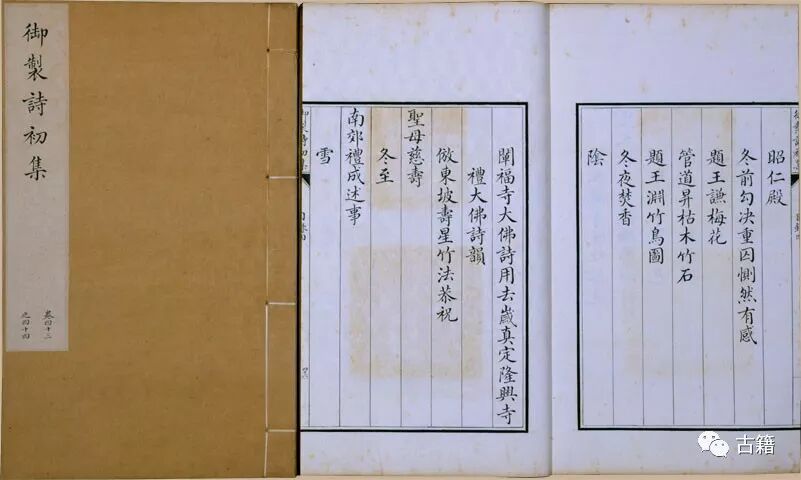 御製詩初集
卷四十二
之四十四
昭仁殿
冬前勾决重囚惻然有感
題王謙梅花
管道昇枯木竹石
題王淵竹鳥圖
冬夜焚香
陰
闡福寺大佛詩用去歲真定隆興寺
禮大佛詩韻
倣東坡壽星竹法恭祝
聖母慈壽
冬至
南郊禮成述事
雪
御製詩初集
古籍